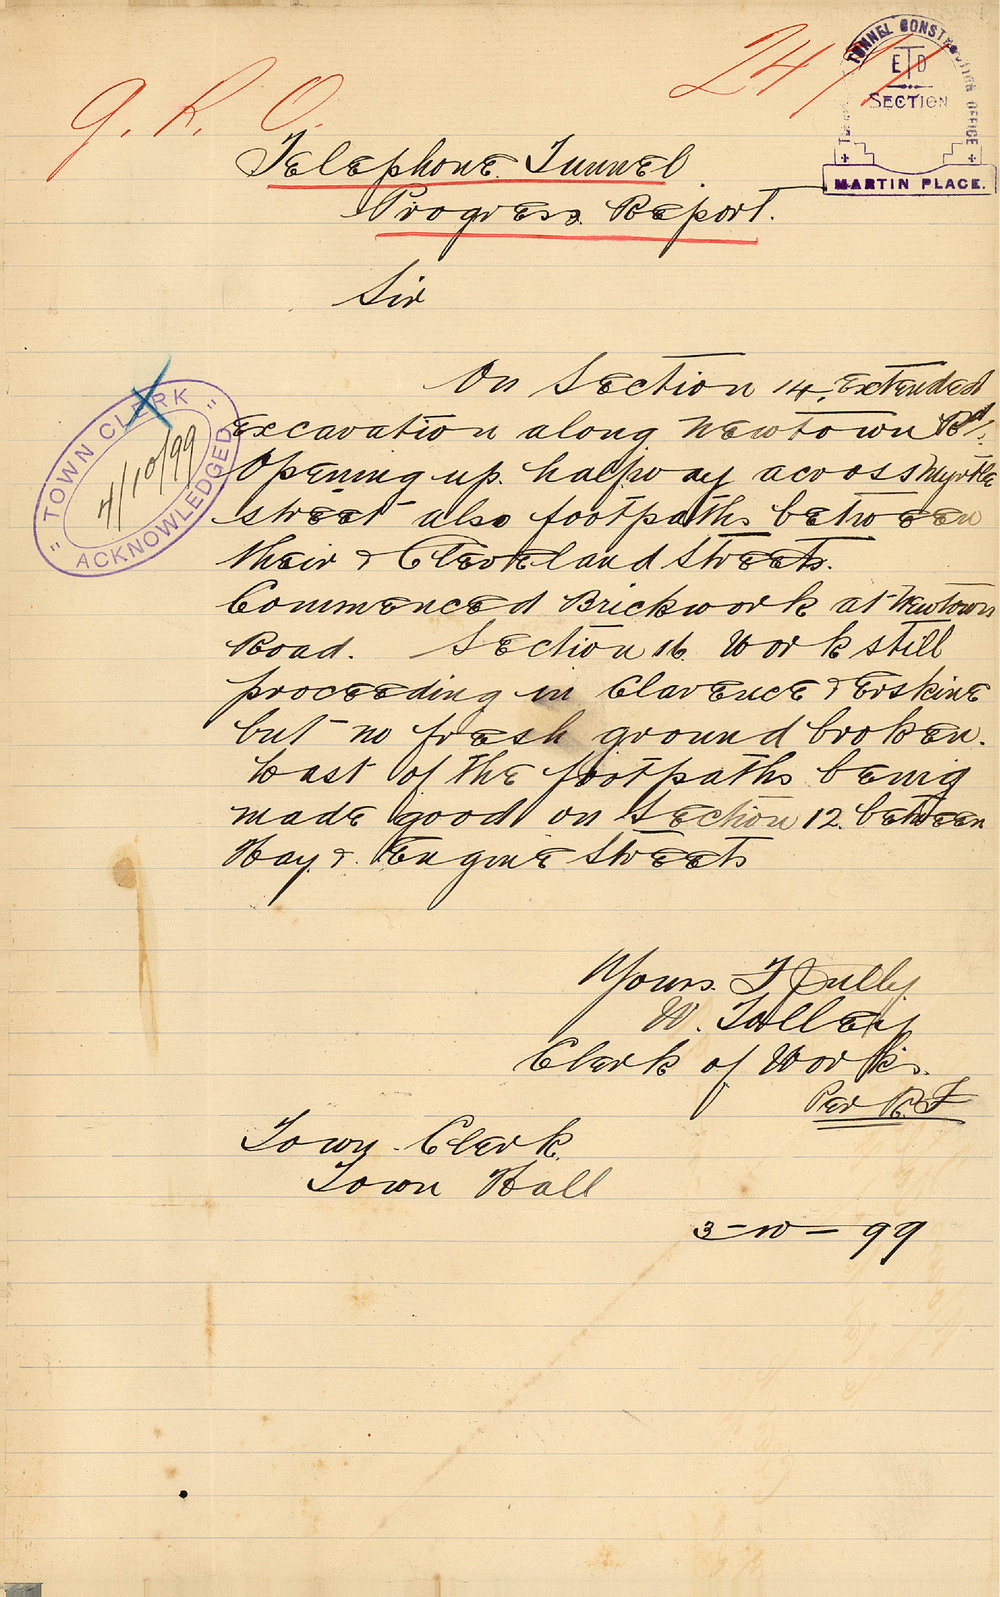 G. P. O.
TUNNEL CONSTRUCTION OFFICE
ETD
SECTION
MARTIN PLACE.
Telephone Tunnel.
Progress Report.
Sir
On Section 14, extended
excavation along Newtown Rd.
Opening up halfway across Myrtle
street also footpaths between
their & Cleveland Streets.
Commenced Brickwork at Newtown
Road. Section 16. Work still
proceeding in Clarence & Erskine
but no fresh ground broken.
Last of the footpaths being
made good on Section 12. between
Hay & Engine Streets
"TOWN CLERK"
4/10/99
ACKNOWLEDGED
Yours T Fully
W. Tolley
Clerk of Works.
Per R. T
Town Clerk
Town Hall
3-10-99